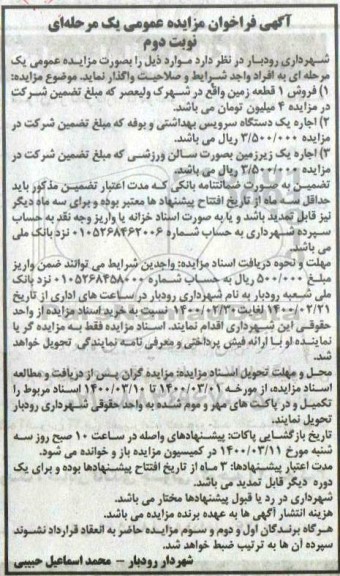 آگهی فراخوان مزایده عمومی یک مرحله‌ای
نوبت دوم
شهرداری رودبار در نظر دارد موارد ذیل را بصورت مزایده عمومی یک
مرحله ای به افراد واجد شرایط و صلاحیت واگذار نماید. موضوع مزایده:
۱) فروش ۱ قطعه زمین واقع در شهرک ولیعصر که مبلغ تضمین شرکت
در مزایده ۴ میلیون تومان می باشد.
۲) اجاره یک دستگاه سرویس بهداشتی و بوفه که مبلغ تضمین شرکت در
مزایده ۳/۵۰۰/۰۰۰ ریال می باشد.
۳) اجاره یک زیرزمین بصورت سالن ورزشی که مبلغ تضمین شرکت در
مزایده ۳/۵۰۰/۰۰۰ ریال می باشد.
تضمین به صورت ضمانتنامه بانکی که مدت اعتبار تضمین مذکور باید
حداقل سه ماه از تاریخ افتتاح پیشنهاد ها معتبر بوده و برای سه ماه دیگر
نیز قابل تمدید باشد و یا به صورت اسناد خزانه یا واریز وجه نقد به حساب
سپرده شهرداری به حساب شماره ۰۱۰۵۲۶۸۴۶۲۰۰۶ نزد بانک ملی
می باشد.
مهلت و نحوه دریافت اسناد مزایده: واجدین شرایط می توانند ضمن واریز
مبلغ ۵۰۰/۰۰۰ ریال به حساب شماره ۰۱۰۵۲۶۸۴۵۸۰۰۰ نزد بانک
ملی شعبه رودبار به نام شهرداری رودبار در ساعت های اداری از تاریخ
۱۴۰۰/۰۲/۲۱ لغایت ۱۴۰۰/۰۲/۳۰ نسبت به خرید اسناد مزایده از واحد
حقوقی این شهرداری اقدام نمایند. اسناد مزایده فقط به مزایده گر یا
نماینده او با ارائه فیش پرداختی و معرفی نامه نمایندگی تحویل خواهد
شد.
محل و مهلت تحویل اسناد مزایده: مزایده گران پس از دریافت و مطالعه
اسناد مزایده، از مورخه ۱۴۰۰/۰۳/۰۱ تا ۱۴۰۰/۰۳/۱۰ اسناد مربوط را
تکمیل و در پاکت های مهر و موم شده به واحد حقوقی شهرداری رودبار
تحویل نمایند.
تاریخ بازگشایی پاکات: پیشنهادهای واصله در ساعت ۱۰ صبح روز سه
شنبه مورخ ۱۴۰۰/۰۳/۱۱ در کمیسیون مزایده باز و خوانده می شود.
مدت اعتبار پیشنهادها: ۳ ماه از تاریخ افتتاح پیشنهادها بوده و برای یک
دوره دیگر قابل تمدید می باشد.
شهرداری در رد یا قبول پیشنهادها مختار می باشد.
هزینه انتشار آگهی ها به عهده برنده مزایده می باشد.
هرگاه برندگان اول و دوم و سوم مزایده حاضر به انعقاد قرارداد نشوند
سپرده آن ها به ترتیب ضبط خواهد شد.
شهردار رودبار – محمد اسماعیل حبیبی